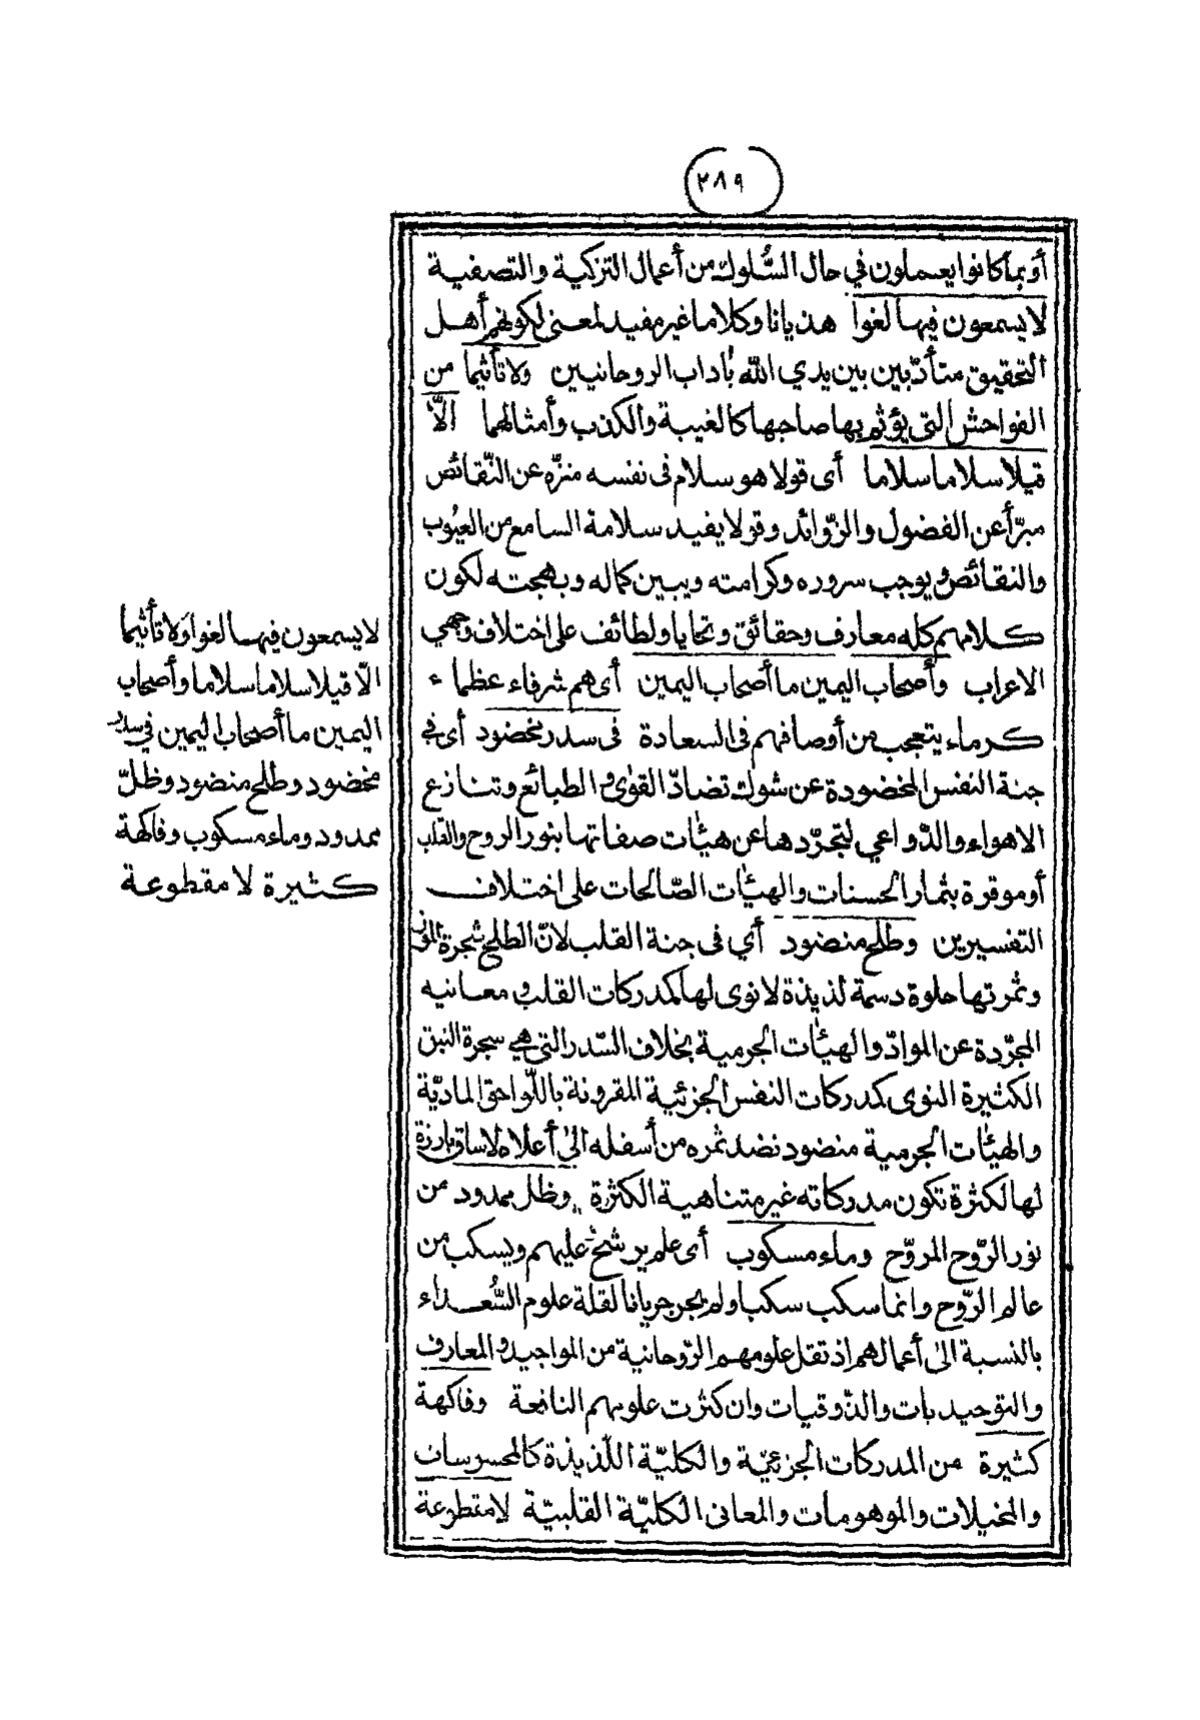 ٢٨٩
أو بما كانوا يعملون في حال السُّلوك من أعمال التزكية والتصفية
لا يسمعون فيها لغوا هذيانا وكلاما غير مفيد لمعنى لكونهم أهل
التحقيق متأدّبين بين يدي الله بآداب الروحانيين ولا تأثيما من
الفواحش التى يؤثم بها صاحبها كالغيبة والكذب وأمثالهما الاّ
قيلا سلاما سلاما أى قولا هو سلام فى نفسه منزّه عن النّقائص
مبرّأ عن الفضول والزّوائد وقولا يفيد سلامة السامع من العيُوب
والنقائص ويوجب سروره وكرامته ويبين كماله وبهجته لكون
كلامهم كله معارف وحقائق وتحايا ولطائف على اختلاف وجهي
الاعراب وأصحاب اليمين ما أصحاب اليمين أى هم شرفاء عظماء
كرماء يتعجب من أوصافهم فى السعادة فى سدر مخضود أى في
جنة النفس المخضودة عن شوك تضادّ القوٰى والطبائع وتنازع
الاهواء والدّواعي لتجرّدها عن هيئٰات صفاتها بنور الروح والقلب
أو موقرة بثمار الحسنات والهيئٰات الصّالحات على اختلاف
التفسيرين وطلح منضود أي فى جنة القلب لانّ الطلح شجرة الموز
وثمرتها حلوة دسمة لذيذة لا نوى لها كمدركات القلب ومعانيه
المجرّدة عن الموادّ والهيئٰات الجرمية بخلاف السّدر التى هي شجرة النبق
الكثيرة النوى كمدركات النفس الجزئية المقرونة باللّواحق الماديّة
والهيئٰات الجرمية منضود نضد ثمره من أسفله الىٰ أعلاه لا ساق بارزة
لها لكثرة تكون مدركاته غير متناهية الكثرة وظل ممدود من
نور الرّوح المروّح وماء مسكوب أى علم يرشح عليهم ويسكب من
عالم الرّوح وانما سكب سكبا ولم يجر جريانا لقلة علوم السُّعداء
بالنسبة الىٰ أعمالهم اذ تقل علومهم الرّوحانية من المواجيد والمعارف
والتوحيديات والذّوقيات وان كثرت علومهم النافعة وفاكهة
كثيرة من المدركات الجزئيّة والكليّة اللّذيذة كالمحسوسات
والمخيلات والموهومات والمعانى الكليّة القلبيّة لا مقطوعة
لا يسمعون فيها لغوا ولا تأثيما
الّا قيلا سلاما سلاما وأصحاب
اليمين ما أصحاب اليمين في سدر
مخضود وطلح منضود وظلّ
ممدود وماء مسكوب وفاكهة
كثيرة لا مقطوعة